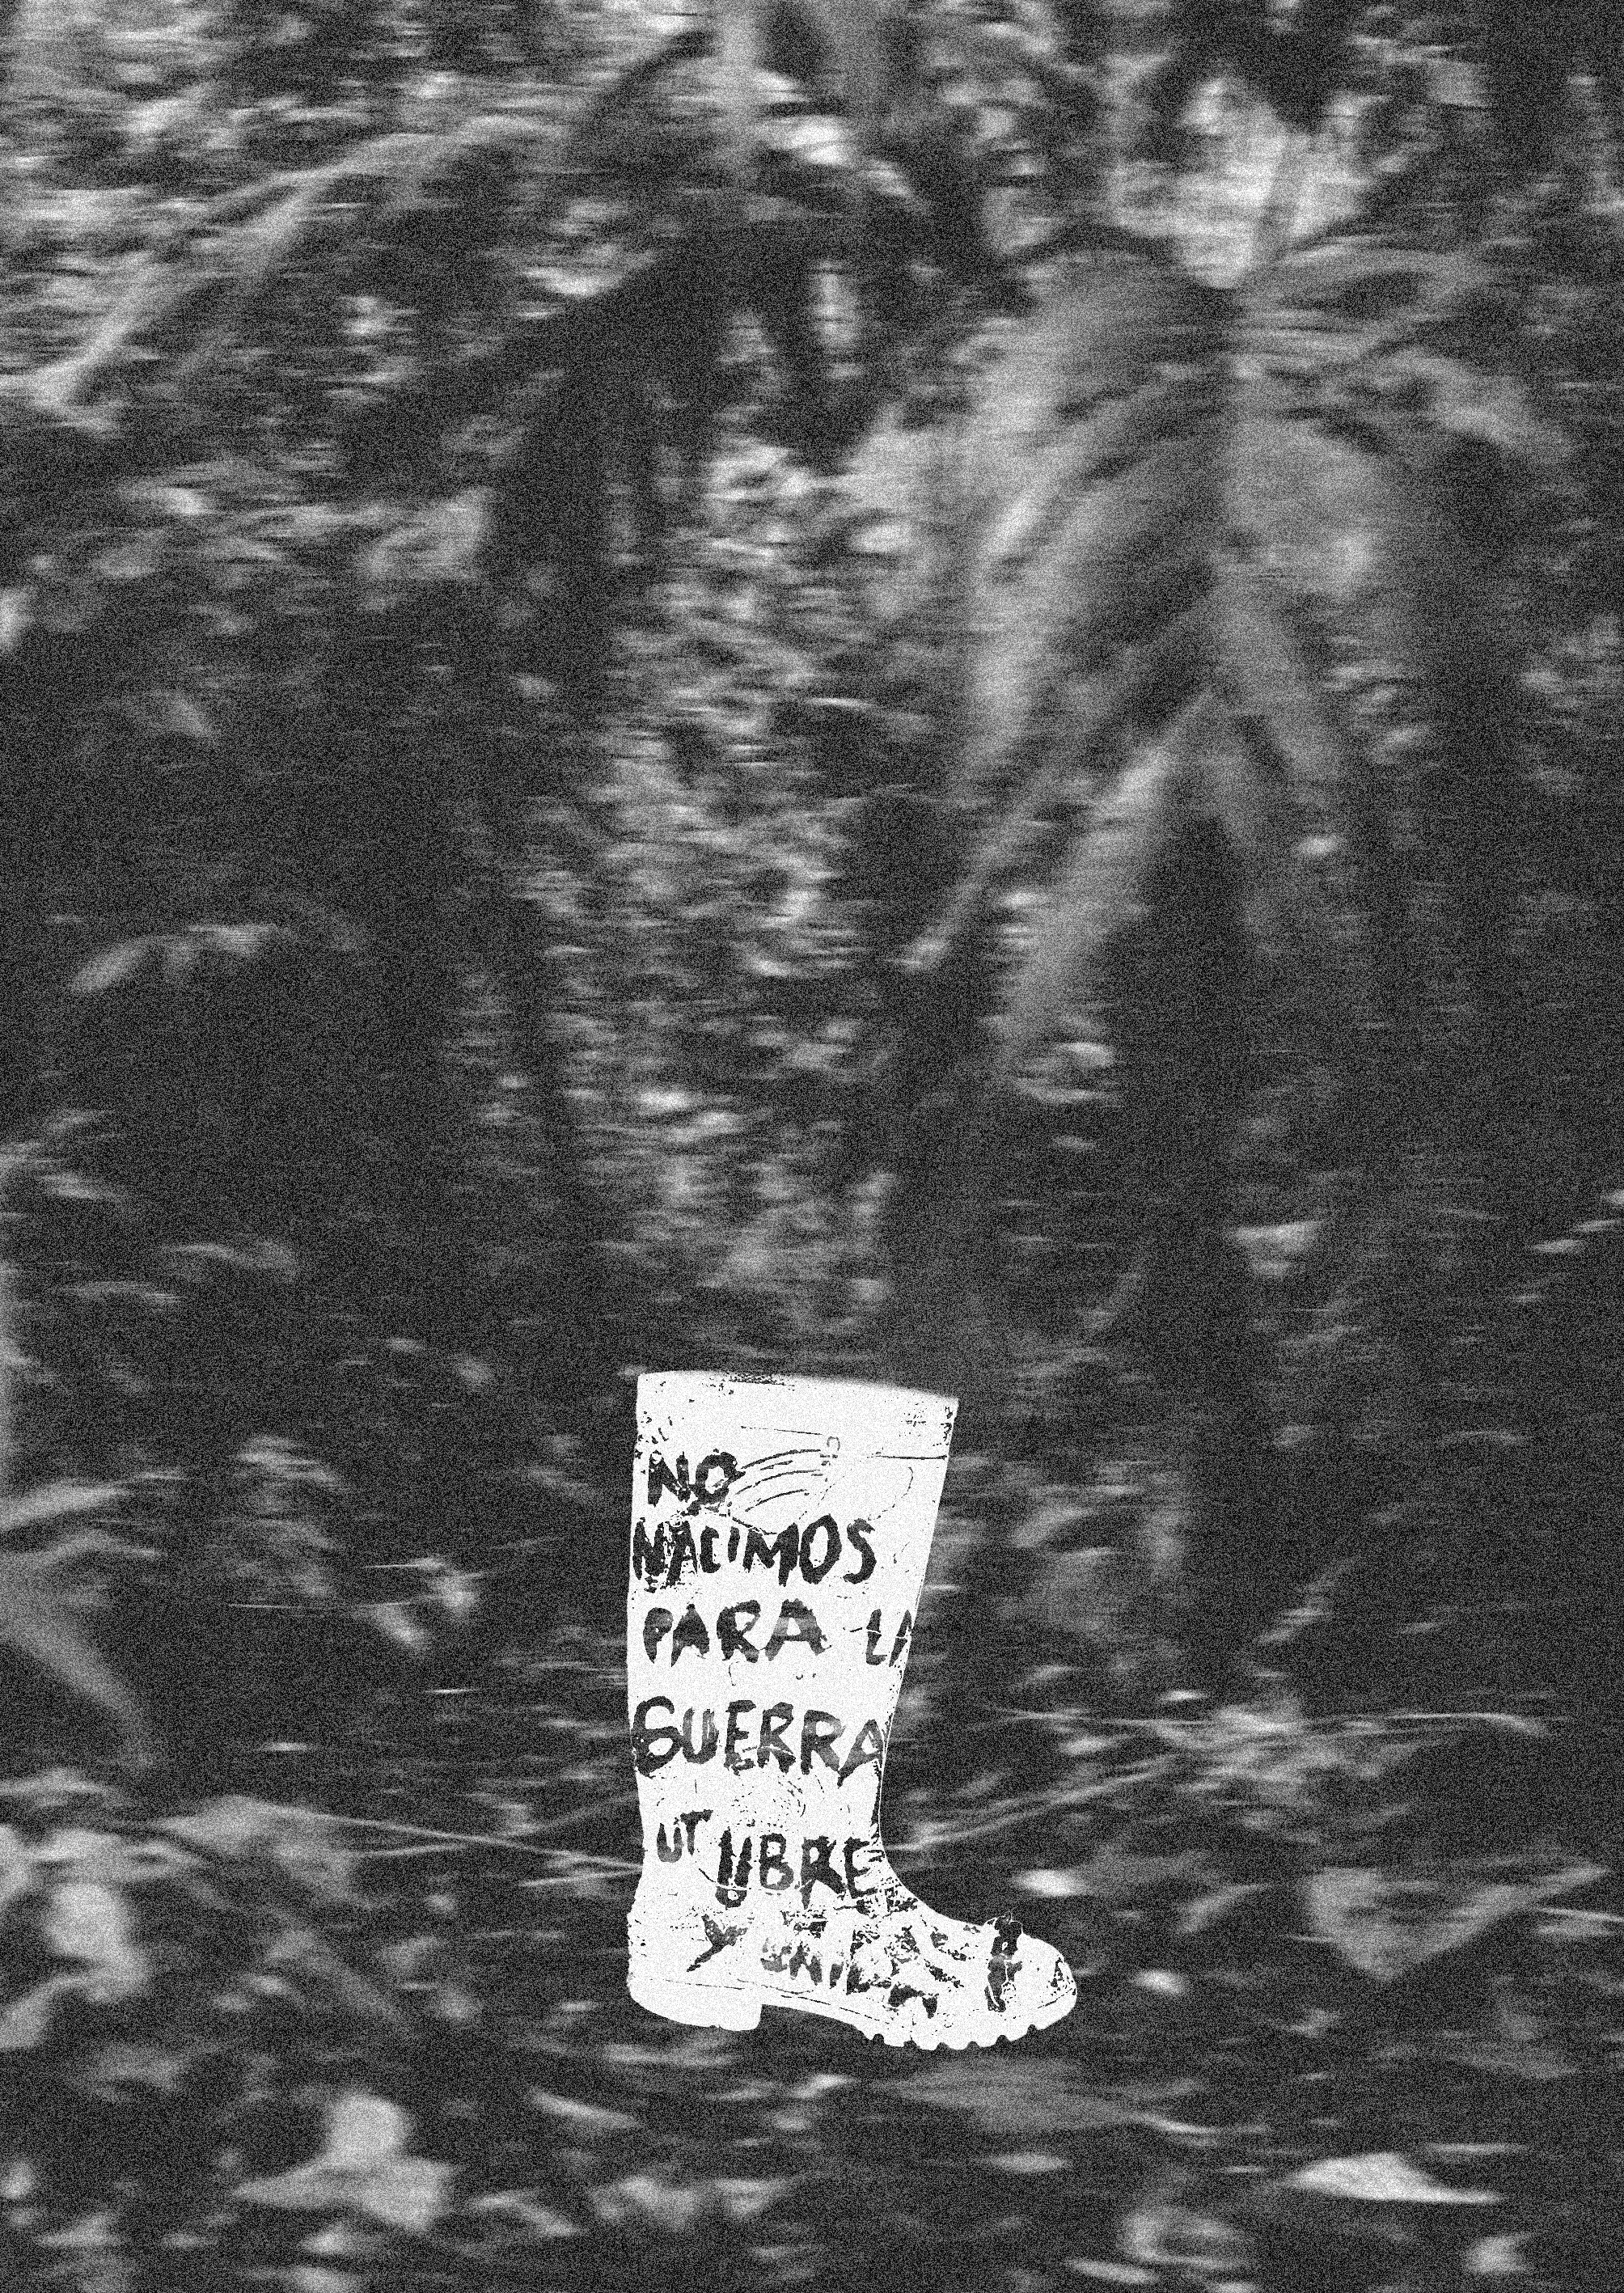 NO
NACIMOS
PARA LA
GUERRA
UT UBRE
Y